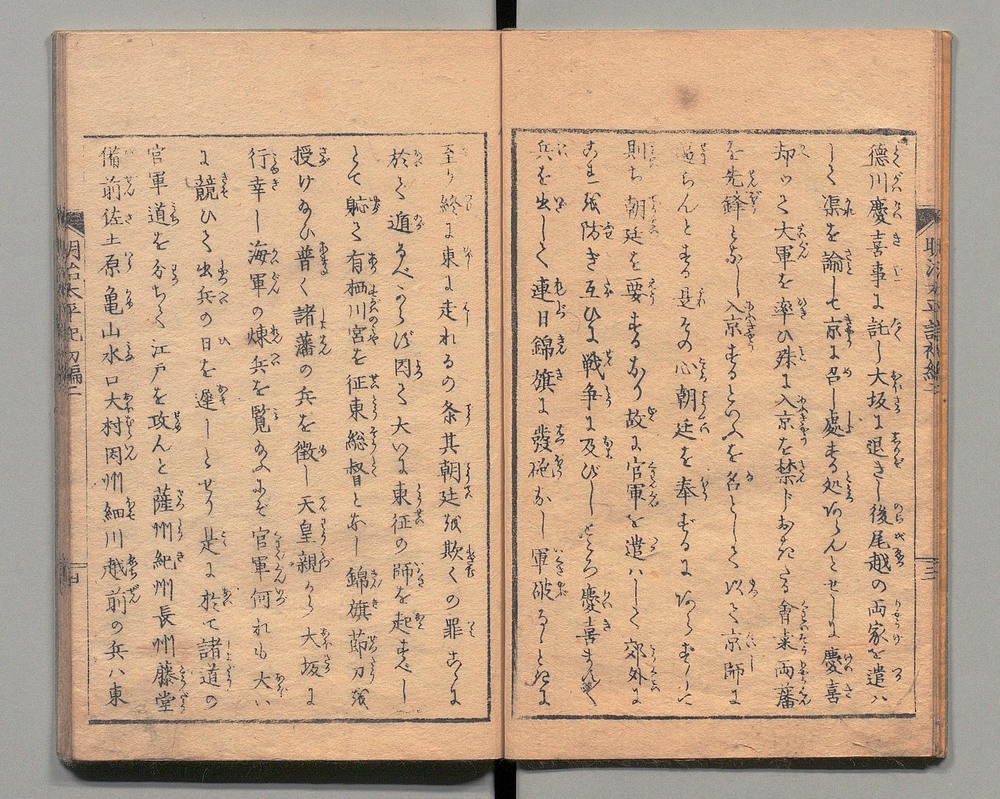 德川慶喜事に託し大坂に退きし後尾越の両家を遣ハ
して渠を論して京に召し處する処あらんとせしに慶喜
却つて大軍を率ひ殊に入京を禁じおきたる會桒両藩
を先鋒となし入京するといへるを名として以て京師に
迫らんとする是その心朝廷を奉ずるにあらずし
則ち朝廷を要するなり故に官軍を遣ハして郊外に
これを防ぎ互ひに戦争に及びしところ慶喜
兵を出して連日錦旗に發砲なし軍破るゝと
至り終に東に走れるの条其朝廷を欺くの罪こゝに
於て遁るべからず因て大いに東征の師を起すべし
とて躬て有栖川宮を征東総督となし錦旗節刀を
授け給ひ普く諸藩の兵を徴し天皇親から大坂に
行幸し海軍の煉兵を覧給ふにぞ官軍何れも大い
に競ひて出兵の日を遅しとせり是に於て諸道の
官軍道を分ちて江戸を攻んと薩州紀州長州藤堂
備前佐土原亀山水口大村因州細川越前の兵ハ東
明治太平記初編二